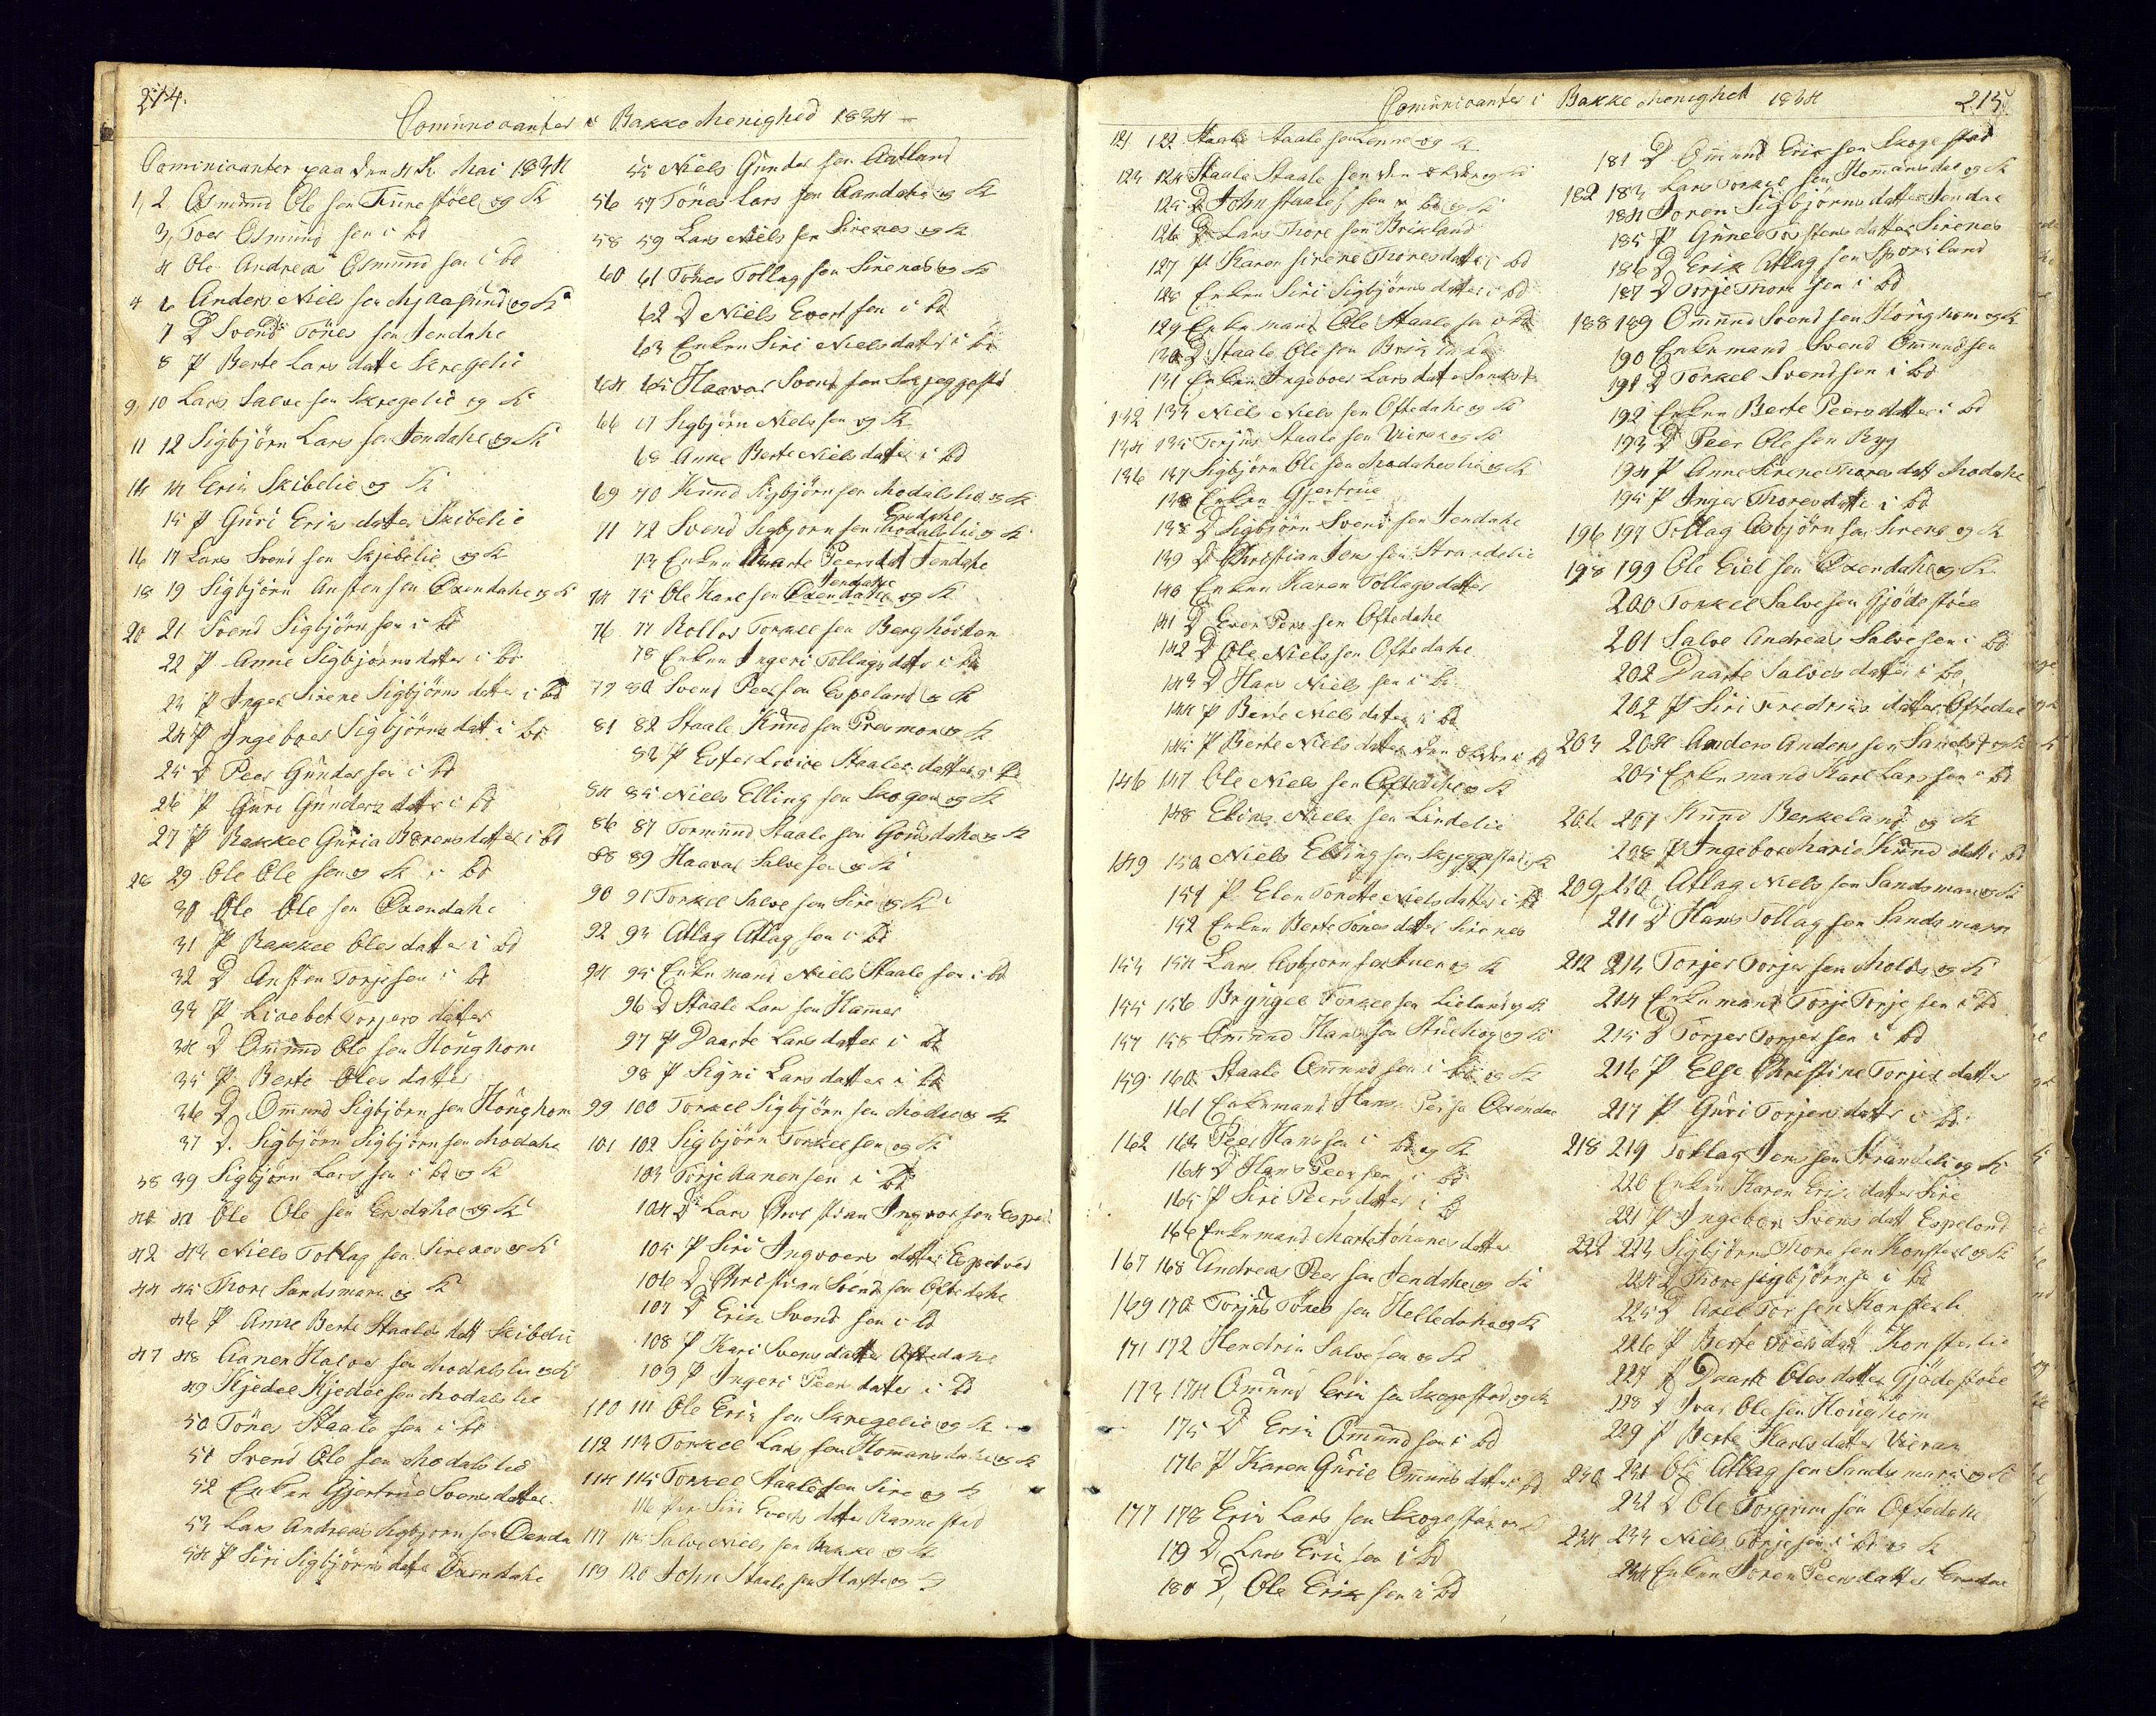 214.
Communicanter i Bakke Menighed 1834
Cominicanter paa den 4de Mai 1834
1, 2 Osmund Ole sen Tunestöel og K
3, Toer Osmund sen i bd
4 Ole Andreas Osmund sen i bd
6 Anders Niels sen og K
7 D Svend Tönes sen Jendahe
8 P Berte Lars datter Skregelie
9, 10 Lars Salve sen Skregelie og K
11 12 Sigbjörn Lars sen Jendahe og K
14 Erik Skibelie og K
15 P Guri Eriks datter Skibelie
16 17 Lars Svend sen Skjebelie og K
18 19 Sigbjörn Austen sen Oxendahe og K
20 21 Svend Sigbjörn sen i bd
22 P Anne Sigbjörns datter i bd
23 P Inger Sirene Sigbjörns datter i bd
24 P Ingeboer Sigbjörns datt i bd
25 D Peer Gunder sen i bd
26 P Guri Gunders datter i bd
27 P Rakkel Guria Börens datter i bd
28 29 Ole Ole sen og K i bd
30 Ole Ole sen Oxendahe
31 P Rakkel Oles datter i bd
32 D Austen Torje sen i bd
33 P Lisebet Torjers datter
34 D Ommund Ole sen Houghom
35 P Berte Oles datter
36 D Ommund Sigbjörn sen Houghom
37 D. Sigbjörn Sigbjörn sen Modahe
38 39 Sigbjörn Lars sen i bd og K
40 41 Ole Ole sen Ersdahe og K
42 43 Niels Tollag sen Sirenes og K
44 45 Thore Sandsmark og K
46 P Anne Berte Staales datt Skibelie
47 48 Aanen Halvor sen Modalslie og K
49 Kjedel Kjedel sen Modalslie
50 Tönes Staale sen i bd
51 Svend Ole sen Modalslie
52 Enken Gjertrue Svens datter
53 Lars Andreas Sigbjorn sen Oxenda
54 P Siri Sigbjörns datter Oxendahe
55 Niels Gunder sen Aatland
56 57 Tönes Lars sen Aamdahe og K
58 59 Lars Niels sen Sirenes og K
60 61 Tönes Tollag sen Sirenes og K
62 D Niels Evert sen i bd
63 Enken Siri Niels datter i bd
64 65 Haavar Svend sen Skjeggestd
66 67 Sigbjörn Niels sen og K
68 Anne Berte Niels datter i bd
69 70 Knud Sigbjörn sen Modalslie og K
71 72 Svend Sigbjorn sen Modalslie Ersdahe og K
73 Enken Peersdat Jendahe
74 75 Ole Karl sen Oxendahe Jendahe og K
76 77 Rollov Torkel sen Berghöiten
78 Enken Ingeri Tollags datter i bd
79 80 Svend Peer sen Espeland og K
81 82 Staale Knud sen Presmon og K
83 P Ester Lovise Staales datter i bd
84 85 Niels Elling sen Skogen og K
86 87 Tormund Staale sen Gousdahe og K
88 89 Haavar Salve sen og K
90 91 Torkel Salve sen Sire og K
92 93 Atlag Atlag sen i bd
94 95 Enkemand Niels Staale sen i bd
96 D Staale Lars sen Hamer
97 P Daarte Lars datter i bd
98 P Signi Lars datter i bd
99 100 Torkel Sigbjörn sen og K
101 102 Sigbjörn Torkel sen og K
103 Torje Aanen sen i bd
104 D Lars Christian Ingvor sen
105 P Siri Ingvoers datter
106 D Christian Svend sen Oftedahe
107 D Erik Svend sen i bd
108 P Kari Svens datter Oftedahe
109 P Ingeri Peers datter i bd
110 111 Ole Erik sen Skregelie og K
112 113 Torkel Lars sen Homansdahe og K
114 115 Torkel Staale sen Sire og K
116 Siri Everts datter Rannestad
117 118 Salve Niels sen Bakke og K
119 120 John Staale sen og K
Comunicanter i Bakke Menighed 1834
215
121 122 Staale Staale sen Lenne og K
123 124 Staale Staale sen den ældre og K
125 D John Staale sen i bd og K
126 D Lars Thore sen Brikland
127 P Karen Sirene Thores datter i bd
128 Enken Siri Sigbjörns datter i bd
129 Enkemand Ole Staale sen i bd
130 D Staale Ole sen
131 Enken Ingeboer Lars datter
132 133 Niels Niels sen Oftedahe og K
134 135 Torjus Staale sen og K
136 137 Sigbjörn Ole sen Modahslie og K
138 Enken Gjertrue
138 D Sigbjörn Svend sen Jendahe
139 D Christian Jens sen Strandelie
140 Enken Karen Tollags datter
141 D Even Peer sen Oftedahe
142 D Ole Niels sen Oftedahe
143 D Hans Niels sen i bd
144 P Berte Niels datter i bd
145 P Berte Niels datter den ældre i bd
146 147 Ole Niels sen Oftedahe og K
148 Elias Niels sen Lindelie
149 150 Niels Elling sen Skjeggestad og K
151 P Elen Tonette Niels datter i bd
152 Enken Berte Tönes datter Sirenes
153 154 Lars Asbjorn sen Tuen og K
155 156 Bryngel Torkel sen Lieland og K
157 158 Ommund Hans sen og K
159 160 Staale Ommund sen i bd og K
161 Enkemand Hans Peer sen Oxendae
162 163 Peer Hans sen i bd og K
164 D Hans Peer sen i bd
165 P Siri Peers datter i bd
166 Enkemand
167 168 Andreas Peer sen Jendahe og K
169 170 Torjus Tönes sen Helledahe og K
171 172 Hendrik Salve sen og K
173 174 Ommund Erik sen Skogestad og K
175 D Erik Ommund sen i bd
176 P Karen Gurie Ommunds datter i bd
177 178 Erik Lars sen Skogestad og K
179 D, Lars Erik sen i bd
180 D, Ole Erik sen i bd
181 D Ommund Erik sen Skogestad
182 183 Lars Torkel sen Homansdal og K
184 Soren Sigbjörns datter Jendae
185 P Gunel Torstens datter Sirenes
186 D Erik Atlag sen
187 D Torje Thore sen i bd
188 189 Ommund Svend sen Houghom og K
190 Enkemand Svend Ommundsen
191 D Torkel Svendsen i bd
192 Enken Berte Peers datter i bd
193 D Peer Ole sen Ryg
194 P Anne Sirene Thores datt Modahe
195 P Inger Thores datter i bd
196 197 Tollag Asbjörn sen Sirenes og K
198 199 Ole Eiel sen Oxendahe og K
200 Torkel Salve sen Gjödestöel
201 Salve Andreas Salve sen i bd
202 Daarte Salves datter i bd
202 P Siri Fredriks datter Oftedal
203 204 Anders Anders sen og K
205 Enkemand Karl Lars sen i bd
206 207 Knud Berkeland og K
208 P Ingeboer Marie Knud datt i bd
209, 210 Atlag Niels sen Sandsmark og K
211 D Hans Tollag sen Sandsmark
212 213 Torjer Torjer sen Molde og K
214 Enkemand Torje Torje sen i bd
215 D Torjer Torjer sen i bd
216 P Else Christine Torjes datter
217 P Guri Torjers datter i bd
218 219 Tollag Jens sen Strandeli og K
220 Enken Karen Eriks datter Sire
221 P Ingebor Svens datt Espeland
222 223 Sigbjörn Thore sen og K
224 D Thore Sigbjörn sen i bd
225 D Axel Tor sen
226 P Berte
227 P Daarte Oles datter Gjödestöel
228 D Ivar Ole sen Houghom
229 P Berte Karls datter
230 231 Ole Atlag sen Sandsmark og K
232 D Ole Torgrim sen Oftedahe
234 233 Niels Torje sen i bd og K
234 Enken Soren Peers datter Ersdae